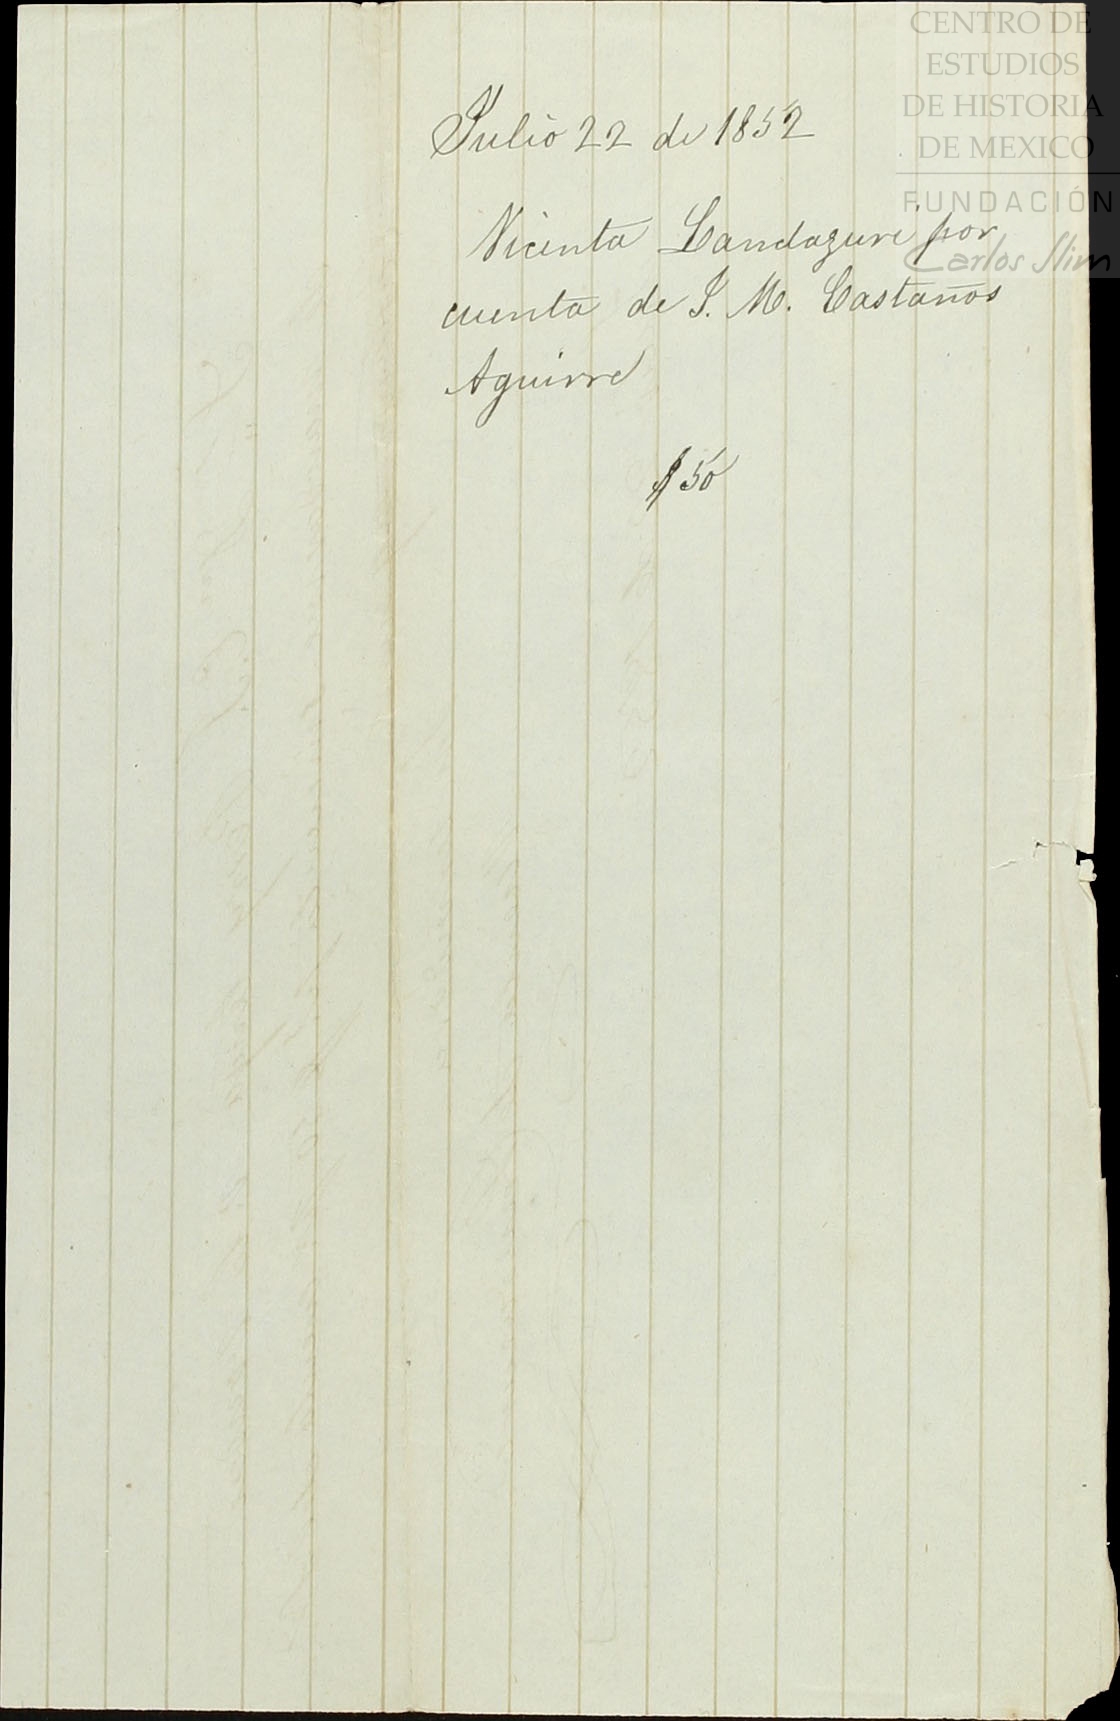 CENTRO DE
ESTUDIOS
DE HISTORIA
DE MEXICO
FUNDACIÓN
Carlos Slim
Julio 22 de 1852
Vicenta Landazuri por
cuenta de J. M. Castaños
Aguirre
$50